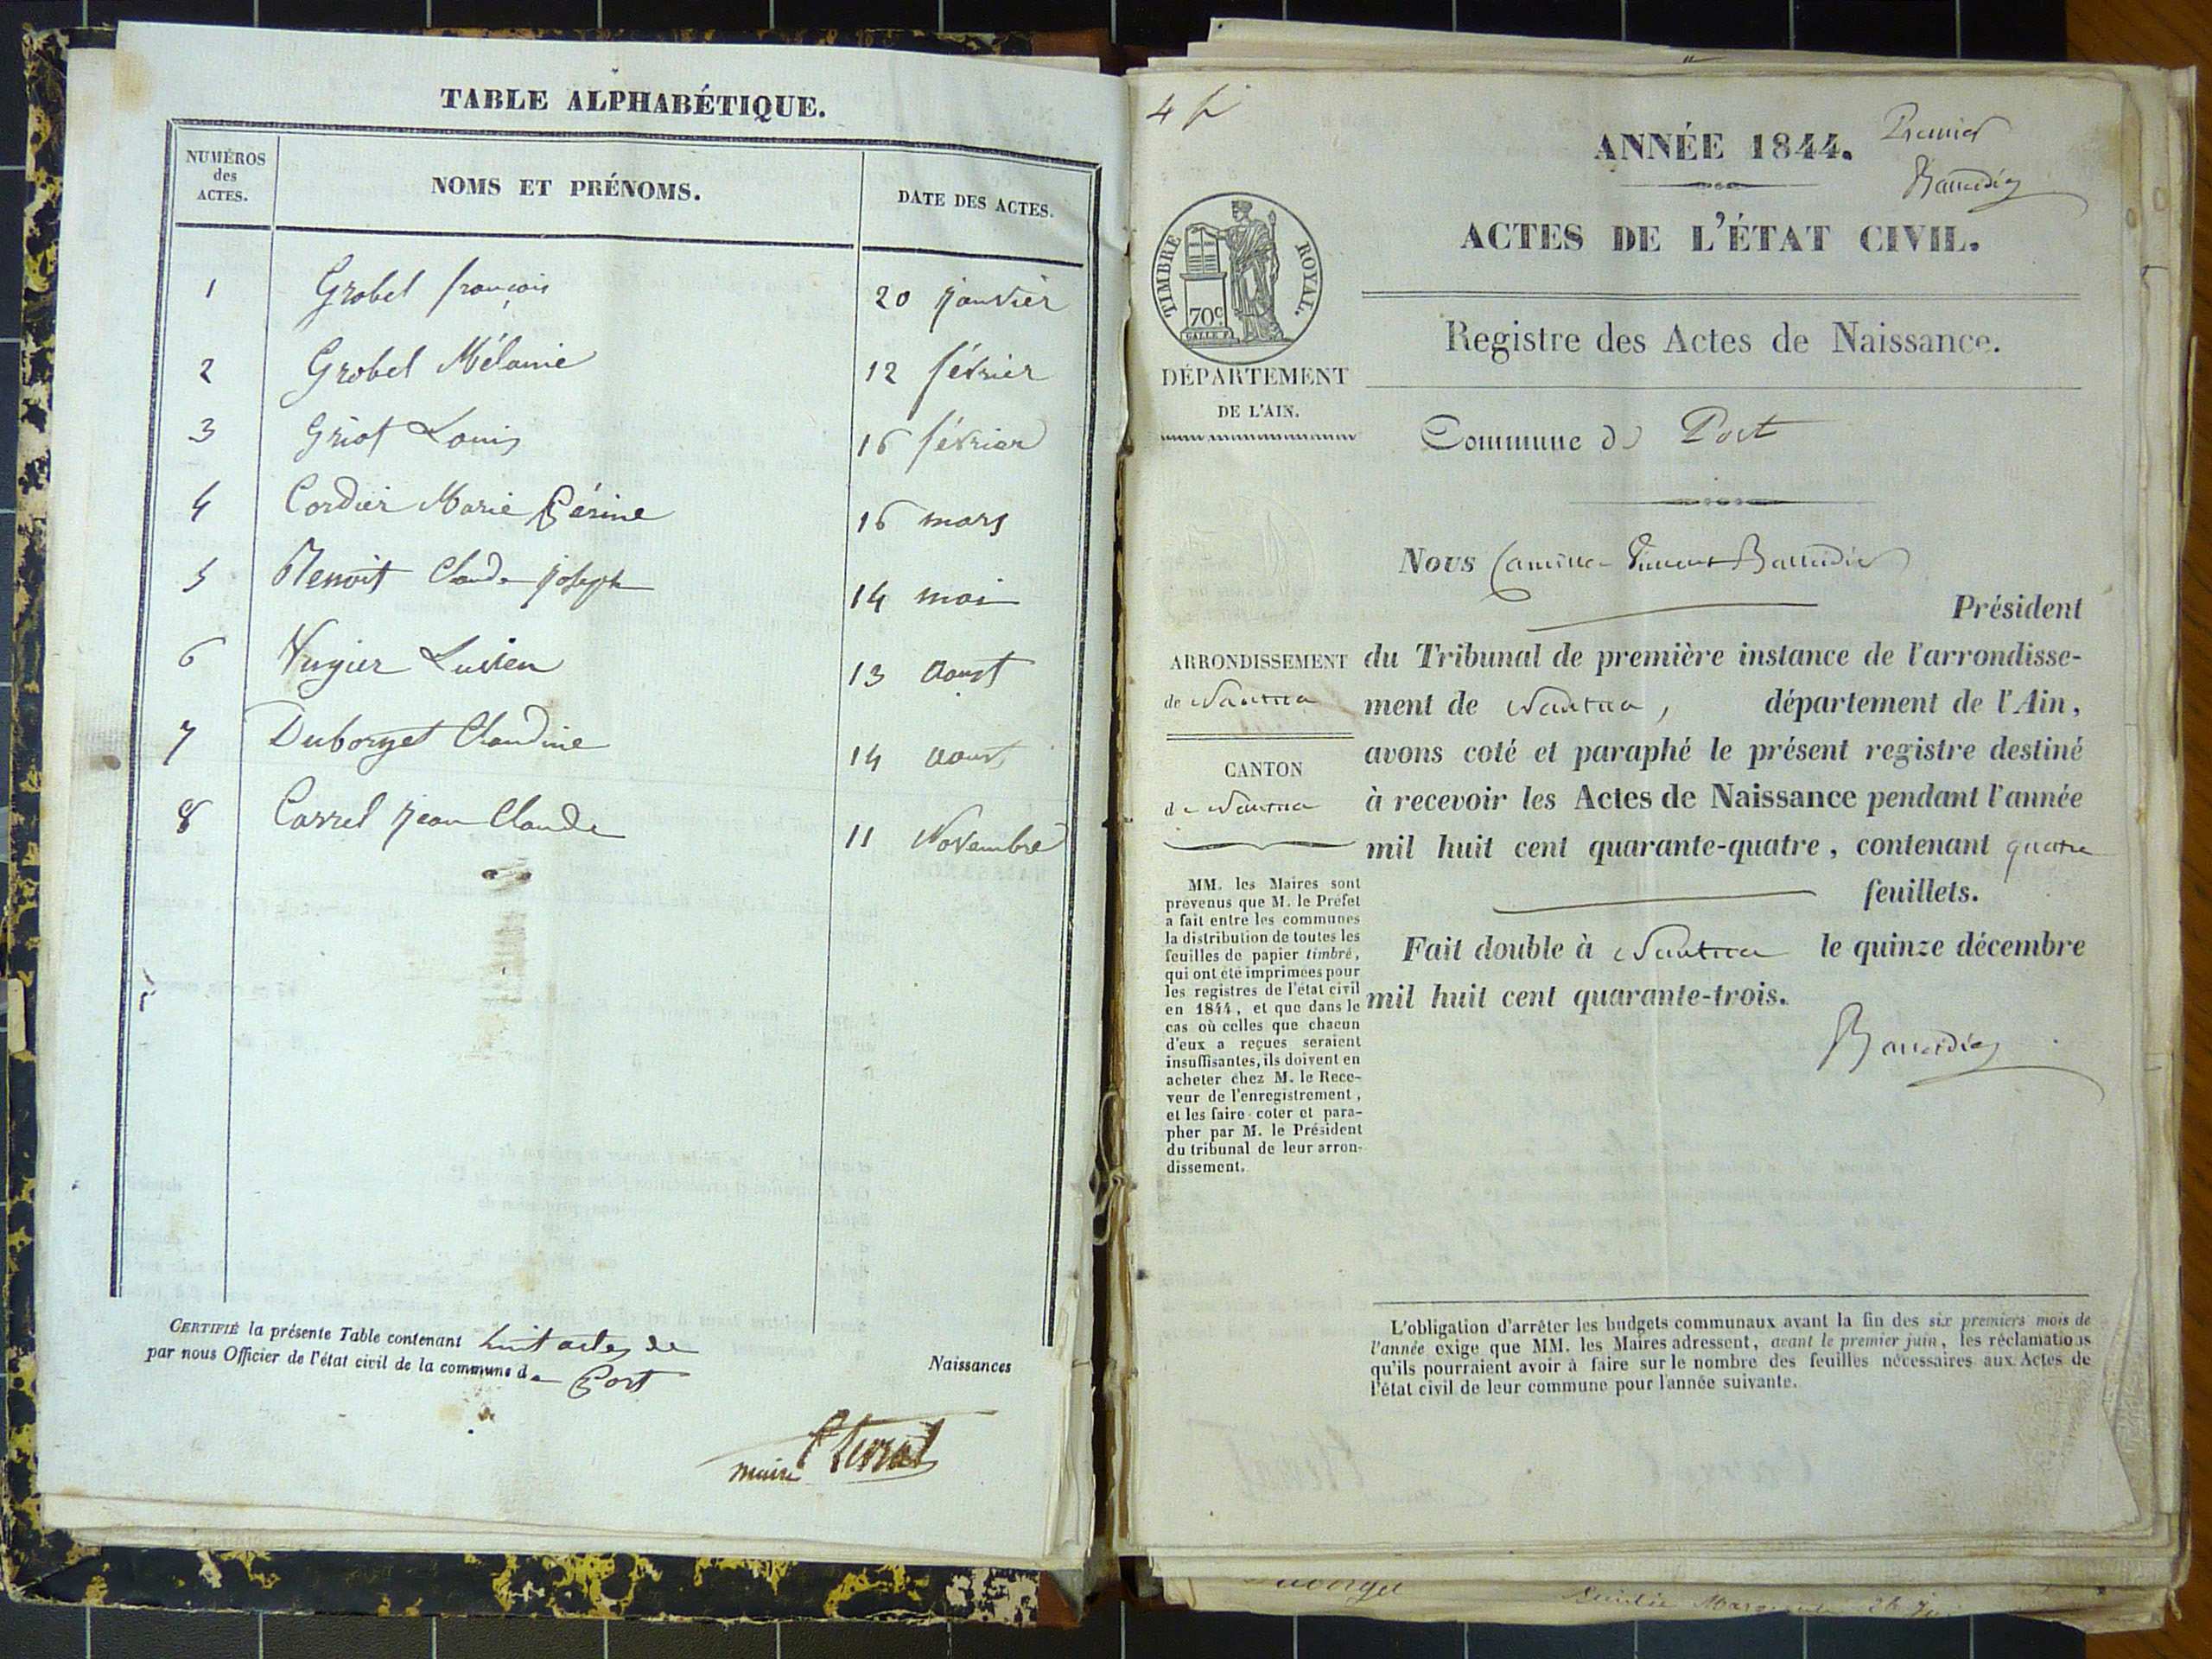 TABLE ALPHABÉTIQUE.
NUMÉROS
des
ACTES.
NOMS ET PRÉNOMS.
DATE DES ACTES.
1 Grobel françois 20 janvier
2 Grobel Mélanie 12 février
3 Griot Louis 16 février
4 Cordier Marie 16 mars
5 Benoit Claude joseph 14 mai
6 Lucien 13 Aoust
7 Duborget Claudine 14 aoust
8 Carrel jean Claude 11 Novembre
CERTIFIÉ la présente Table contenant huit actes de
Naissances
par nous Officier de l'état civil de la commune de Port
maire
4 f
Premier
ANNÉE 1844.
ACTES DE L'ÉTAT CIVIL.
TIMBRE ROYAL.
70c
Registre des Actes de Naissance.
DÉPARTEMENT
DE L'AIN.
Commune de Port
Nous Camille Vincent
Président
ARRONDISSEMENT
de Nantua
CANTON
de Nantua
du Tribunal de première instance de l'arrondisse-
ment de Nantua, département de l'Ain,
avons coté et paraphé le présent registre destiné
à recevoir les Actes de Naissance pendant l'année
mil huit cent quarante-quatre, contenant quatre
feuillets.
Fait double à Nantua le quinze décembre
mil huit cent quarante-trois.
MM. les Maires sont
prévenus que M. le Préfet
a fait entre les communes
la distribution de toutes les
feuilles de papier timbré,
qui ont été imprimées pour
les registres de l'état civil
en 1844, et que dans le
cas où celles que chacun
d'eux a reçues seraient
insuffisantes, ils doivent en
acheter chez M. le Rece-
veur de l'enregistrement,
et les faire coter et para-
pher par M. le Président
du tribunal de leur arron-
dissement.
L'obligation d'arrêter les budgets communaux avant la fin des six premiers mois de
l'année exige que MM. les Maires adressent, avant le premier juin, les réclamations
qu'ils pourraient avoir à faire sur le nombre des feuilles nécessaires aux Actes de
l'état civil de leur commune pour l'année suivante.